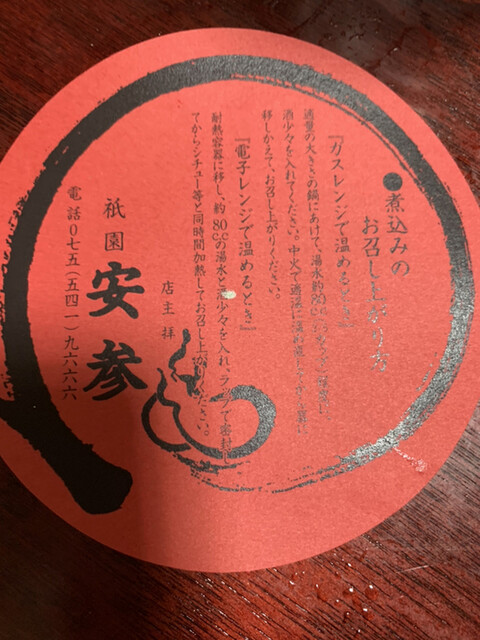 煮込みの
お召し上がり方
『ガスレンジで温めるとき』
適量の大きさの鍋にあけて、湯水約80㏄
酒少々を入れてください。中火で適温に温め
移しかえて、お召し上がりください。
『電子レンジで温めるとき』
耐熱容器に移し、約80㏄の湯水と酒少々を入れ、ラップで密封し
てからシチュー等と同時間加熱してお召し上がりください。
店主 拝
祇園 安参
電話〇七五(五四一)九六六六